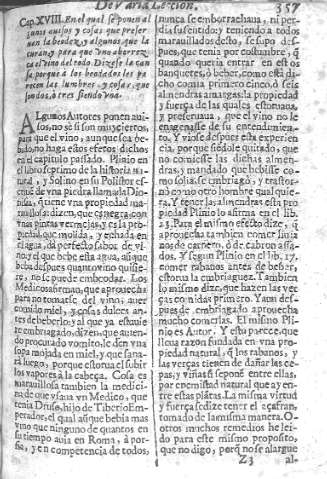 De varia Lecion.
357
Cap. XVIII. En el qual se ponen al
gunos auisos y cosas que preser
uan la beodez, y algunas que la
curan, y para que vno aborrez-
ca el vino del todo. Dizese la cau
sa porque a los beodos les pa
recen las lumbres, y cosas, que
son dos, o tres siendo vna.
ALgunos Autores ponen auisos,
no sé si son muy ciertos,
para que el vino, aunque sea be
bido, no haga estos efetos dichos
en el capitulo passado. Plinio en
el libro septimo de la historia Na
tural, y Solino en su Polistor
que de vna piedra llamada Dio-
nisia, tiene vna propiedad ma-
rauillosa: dizen, que es negra, con
vnas pintas vermejas, y es la pro
piedad, que molida, y echada en
el agua, da perfeto sabor de vi-
no, y el que bebe esta agua, aũque
beba despues quanto vino quisie-
re, no se puede embeodar. Los
Medicos afirman, que aprouecha
para no tomarse del vino, auer
comido miel, y cosas dulces an-
tes de beberlo: y al que ya estuuie
re embriagado, dizen, que auien-
do procurado vomito, le den vna
sopa mojada en miel, y que sana
rá luego, porque estorua el subir
los vapores a la cabeça. Cosa es
marauillosa tambien la medici-
na de que vsaua vn Medico, que
tenia Druso, hijo de Tiberio Em-
perador, el qual aũque bebia mas
vino que ninguno de quantos en
su tiempo auia en Roma, à por-
fia, y en competencia de todos,
nunca se emborrachaua, ni per-
dia su sentido: y teniendo a todos
marauillados desto, se supo des-
pues, que tenia por costumbre,
quando queria entrar en estos
banquetes, ò beber, como està di-
cho comia primero cinco, ò seis
almendras amargas: la propiedad
y fuerça de las quales estoruaua,
y preseruaua, que el vino no le
enagenasse de su entendimien-
to. Y vióse despues esta experien
cia, porque siẽdole quitado, que
no comiesse las dichas almen-
dras, y mandado que bebiesse co-
mo solia, se embriagò, y trastor-
nò como otro hombre qualquie-
ra. Y tener las almendras esta pro
piedad Plinio lo afirma en el lib.
23. Para el mismo efeto dize, q̃
aprouecha tambien comer liuia
nos de carnero, ò de cabron assa-
dos. Y segun Plinio en el lib. 17.
comer rabanos antes de beber,
estorua la embriaguez. Tambien
lo mismo dize, que hazen las ver
ças comidas primero. Y aun des-
pues de embriagado aprouecha
mucho comerlas. El mismo Pli-
nio es Autor. Y esta parece, que
lleua razon fundada en vna pro
piedad natural, q̃ los rabanos, y
las verças tienen de dañar las ce-
pas, y viñas si se ponẽ entre ellas,
por enemistad natural que ay en-
tre estas plantas. La misma virtud
y fuerça se dize tener el açafran,
tomado de la misma manera. O-
tros muchos remedios he lei-
do para este mismo proposito,
que no digo, porq̃ no se alargue
Z 3
al-